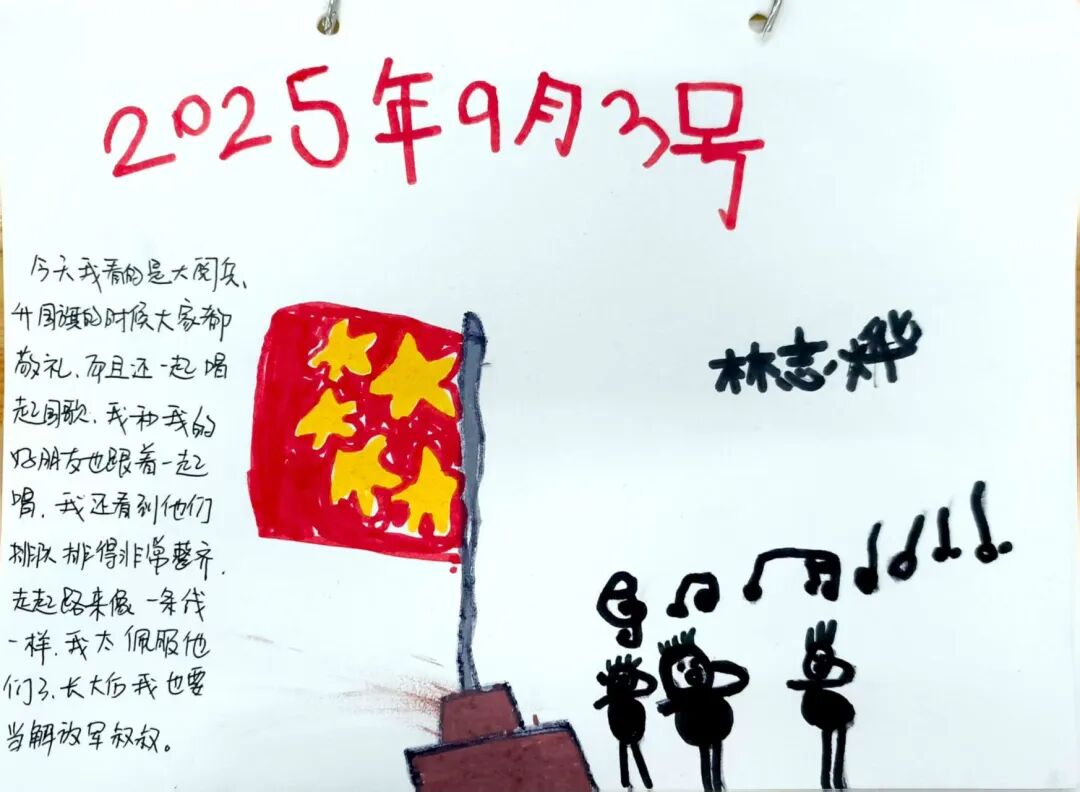 2025年9月3号
今天我看的是大阅兵、
升国旗的时候大家都
敬礼、而且还一起唱
起国歌、我和我的
好朋友也跟着一起
唱、我还看到他们
排队排得非常整齐、
走起路来像一条线
一样、我太佩服他
们了、长大后我也要
当解放军叔叔。
林志烨